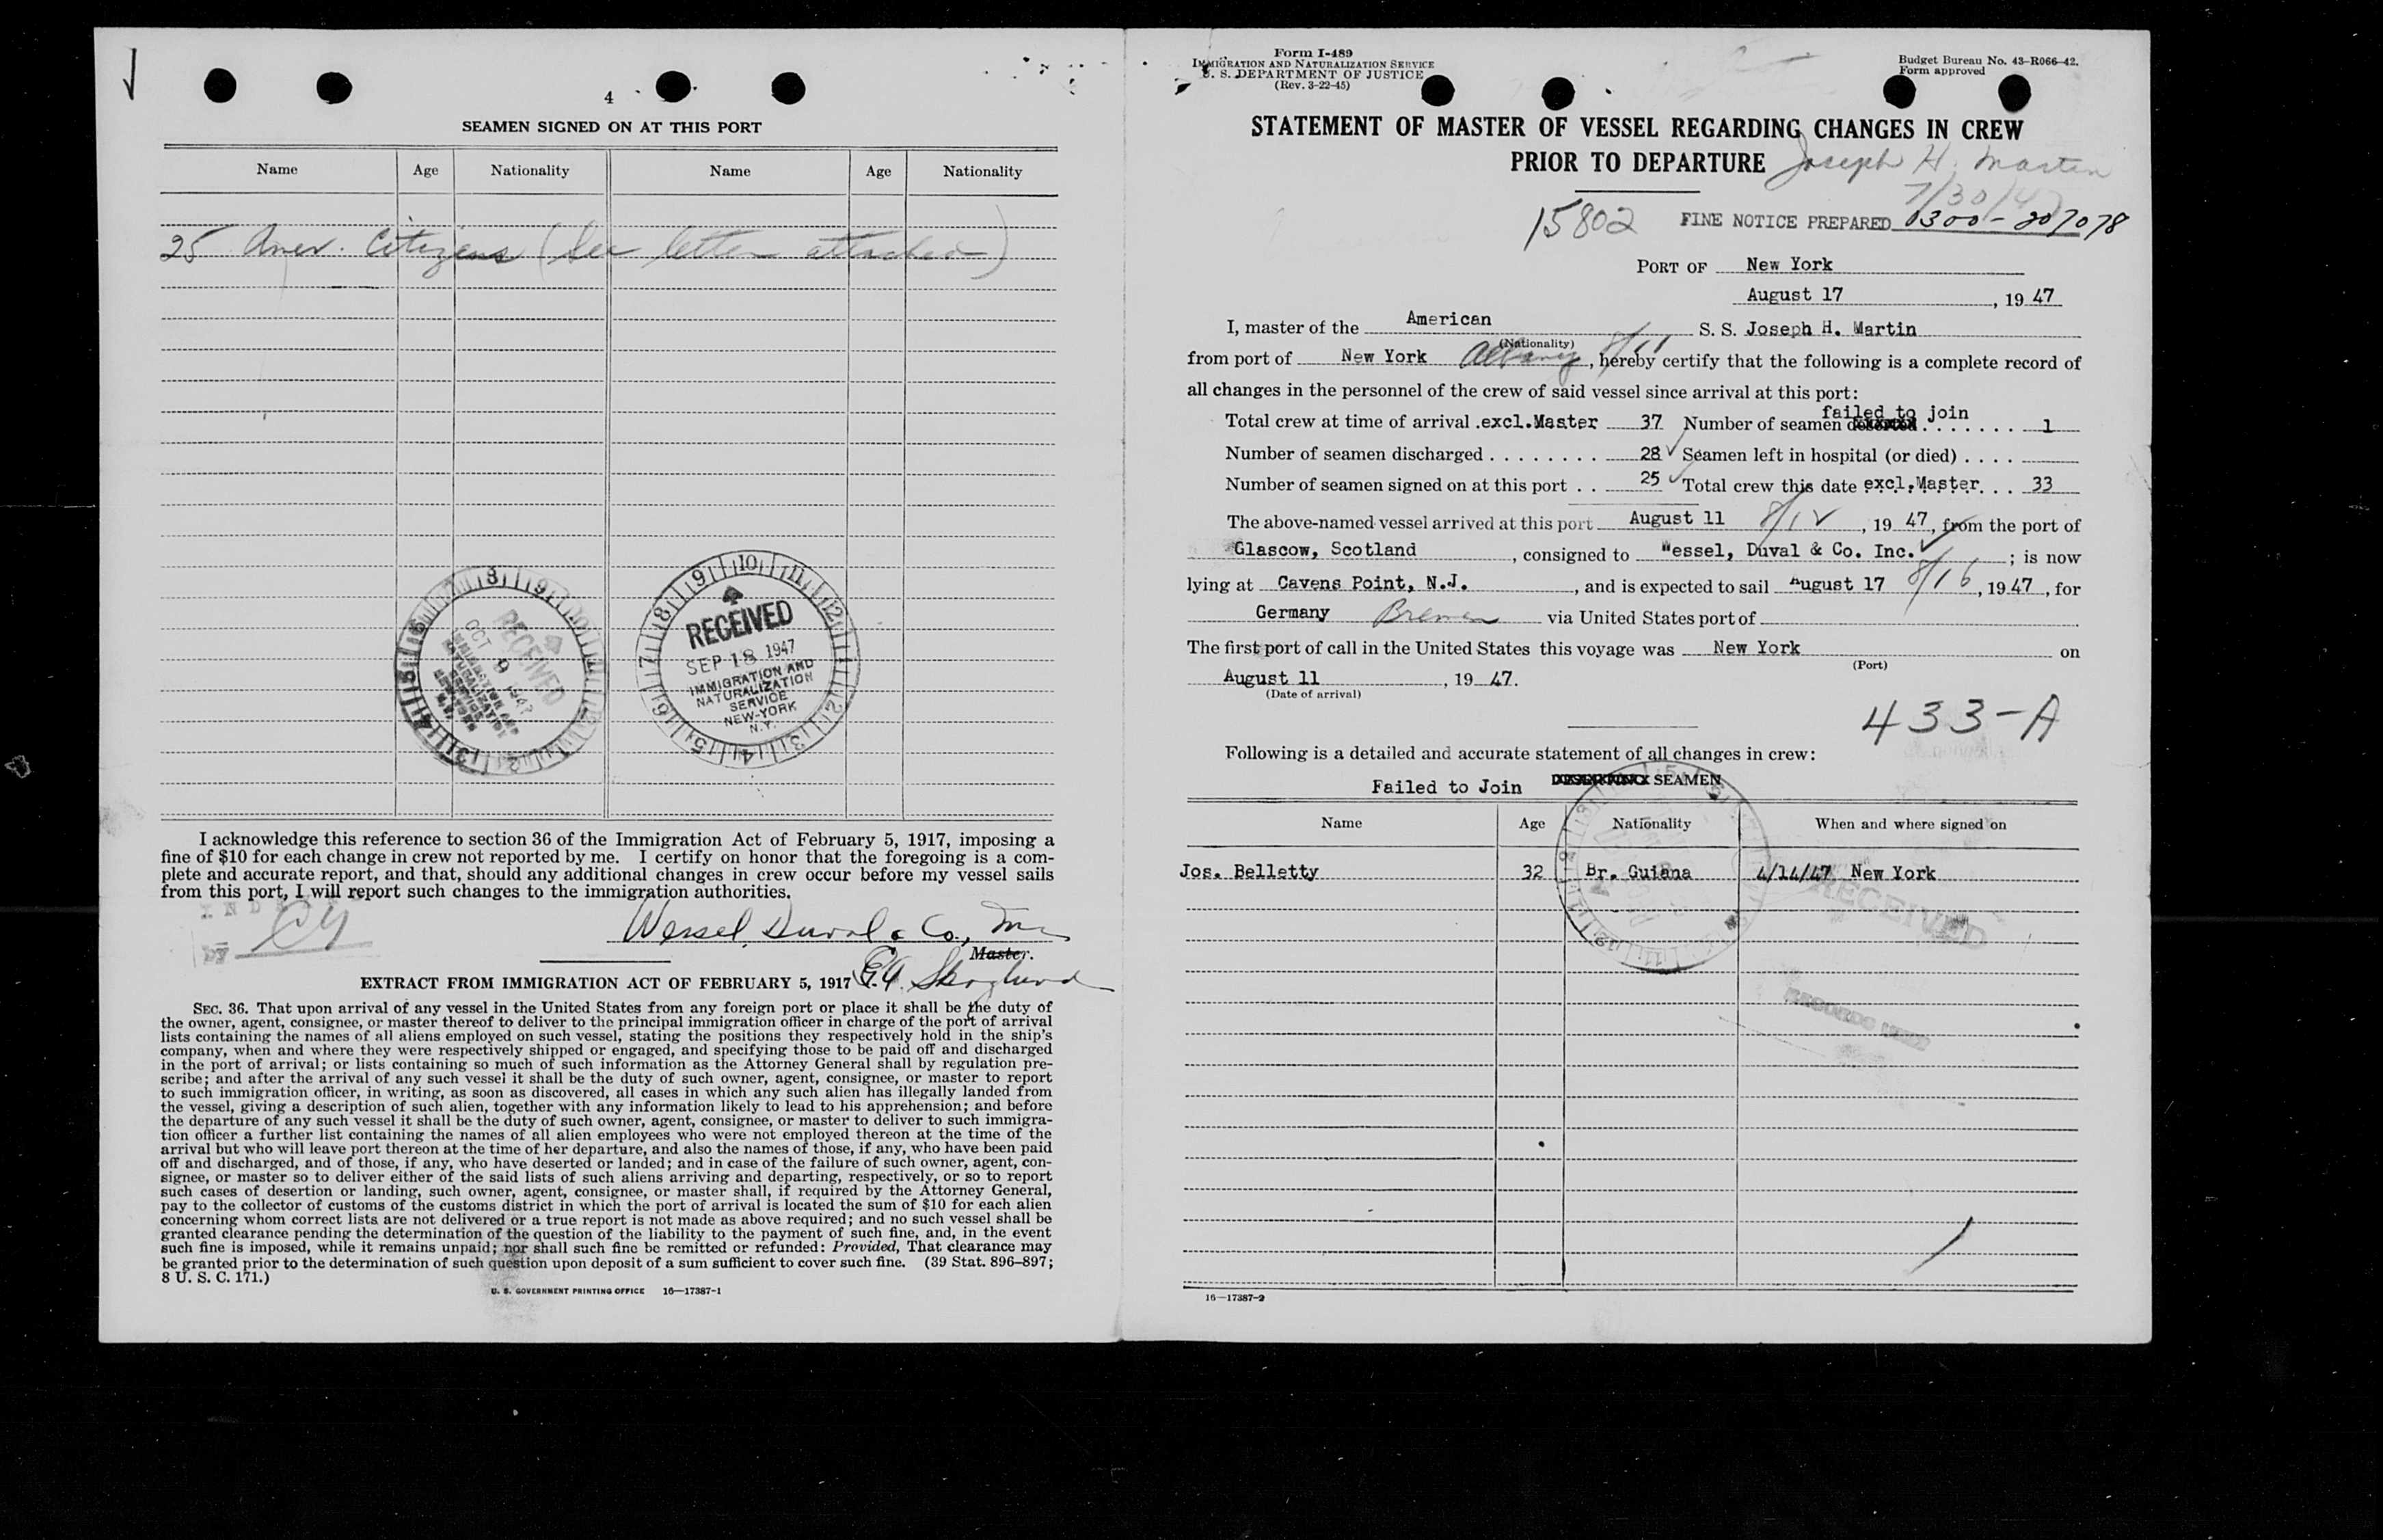 4
SEAMEN SIGNED ON AT THIS PORT
Name Age Nationality Name Age Nationality
25 Amer. Citizens (See letter attached)
RECEIVED
OCT 9 1947
IMMIGRATION AND
NATURALIZATION
SERVICE
NEW-YORK
N.Y.
RECEIVED
SEP 18 1947
IMMIGRATION AND
NATURALIZATION
SERVICE
NEW-YORK
N.Y.
I acknowledge this reference to section 36 of the Immigration Act of February 5, 1917, imposing a
fine of $10 for each change in crew not reported by me. I certify on honor that the foregoing is a com-
plete and accurate report, and that, should any additional changes in crew occur before my vessel sails
from this port, I will report such changes to the immigration authorities.
Wessel, Duval & Co., Inc
Master.
EXTRACT FROM IMMIGRATION ACT OF FEBRUARY 5, 1917
SEC. 36. That upon arrival of any vessel in the United States from any foreign port or place it shall be the duty of
the owner, agent, consignee, or master thereof to deliver to the principal immigration officer in charge of the port of arrival
lists containing the names of all aliens employed on such vessel, stating the positions they respectively hold in the ship's
company, when and where they were respectively shipped or engaged, and specifying those to be paid off and discharged
in the port of arrival; or lists containing so much of such information as the Attorney General shall by regulation pre-
scribe; and after the arrival of any such vessel it shall be the duty of such owner, agent, consignee, or master to report
to such immigration officer, in writing, as soon as discovered, all cases in which any such alien has illegally landed from
the vessel, giving a description of such alien, together with any information likely to lead to his apprehension; and before
the departure of any such vessel it shall be the duty of such owner, agent, consignee, or master to deliver to such immigra-
tion officer a further list containing the names of all alien employees who were not employed thereon at the time of the
arrival but who will leave port thereon at the time of her departure, and also the names of those, if any, who have been paid
off and discharged, and of those, if any, who have deserted or landed; and in case of the failure of such owner, agent, con-
signee, or master so to deliver either of the said lists of such aliens arriving and departing, respectively, or so to report
such cases of desertion or landing, such owner, agent, consignee, or master shall, if required by the Attorney General,
pay to the collector of customs of the customs district in which the port of arrival is located the sum of $10 for each alien
concerning whom correct lists are not delivered or a true report is not made as above required; and no such vessel shall be
granted clearance pending the determination of the question of the liability to the payment of such fine, and, in the event
such fine is imposed, while it remains unpaid; nor shall such fine be remitted or refunded: Provided, That clearance may
be granted prior to the determination of such question upon deposit of a sum sufficient to cover such fine. (39 Stat. 896-897;
8 U. S. C. 171.)
U. S. GOVERNMENT PRINTING OFFICE 16—17387-1
Form I-489
IMMIGRATION AND NATURALIZATION SERVICE
U. S. DEPARTMENT OF JUSTICE
(Rev. 3-22-45)
Budget Bureau No. 43-R066-42.
Form approved
STATEMENT OF MASTER OF VESSEL REGARDING CHANGES IN CREW
PRIOR TO DEPARTURE Joseph H. Martin
7/30/47
15802 FINE NOTICE PREPARED 0300-207078
PORT OF New York
August 17, 19 47
I, master of the American S. S. Joseph H. Martin
(Nationality)
from port of New York Albany 8/11, hereby certify that the following is a complete record of
all changes in the personnel of the crew of said vessel since arrival at this port:
failed to join
Total crew at time of arrival excl.Master 37 Number of seamen deserted 1
Number of seamen discharged 28 Seamen left in hospital (or died)
Number of seamen signed on at this port 25 Total crew this date excl.Master 33
The above-named vessel arrived at this port August 11 8/12, 19 47, from the port of
Glascow, Scotland, consigned to Wessel, Duval & Co. Inc.; is now
lying at Cavens Point, N.J., and is expected to sail August 17 8/16, 1947, for
Germany Bremen via United States port of
The first port of call in the United States this voyage was New York on
(Port)
August 11, 19 47.
(Date of arrival)
433-A
Following is a detailed and accurate statement of all changes in crew:
Failed to Join DESERTING SEAMEN
Name Age Nationality When and where signed on
Jos. Belletty 32 Br. Guiana 4/14/47 New York
RECEIVED
16—17387-2